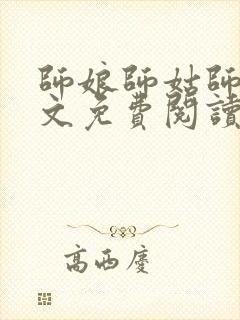 師娘師姑師
文免費閱讀
高西慶